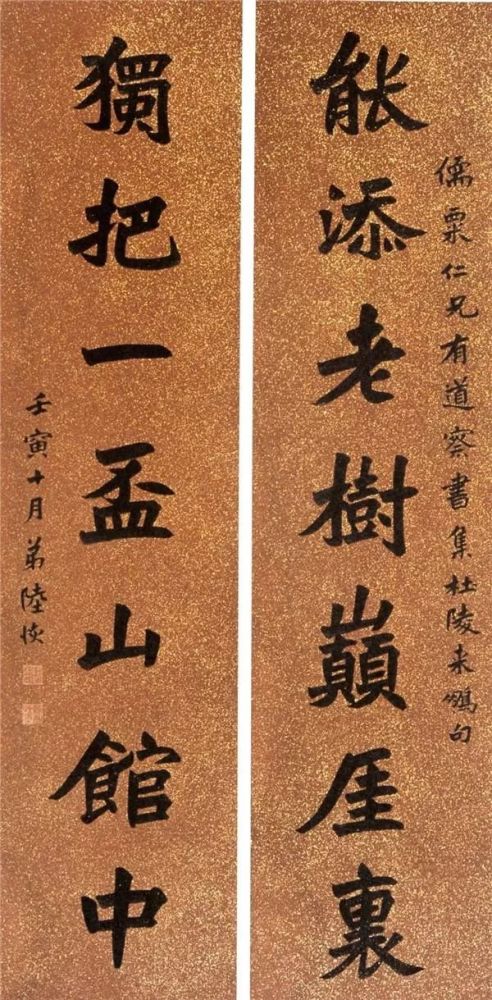 儒粟仁兄有道察書集杜陵來鵬句
能添老樹巔厓裏
獨把一盃山館中
壬寅十月弟陸恢